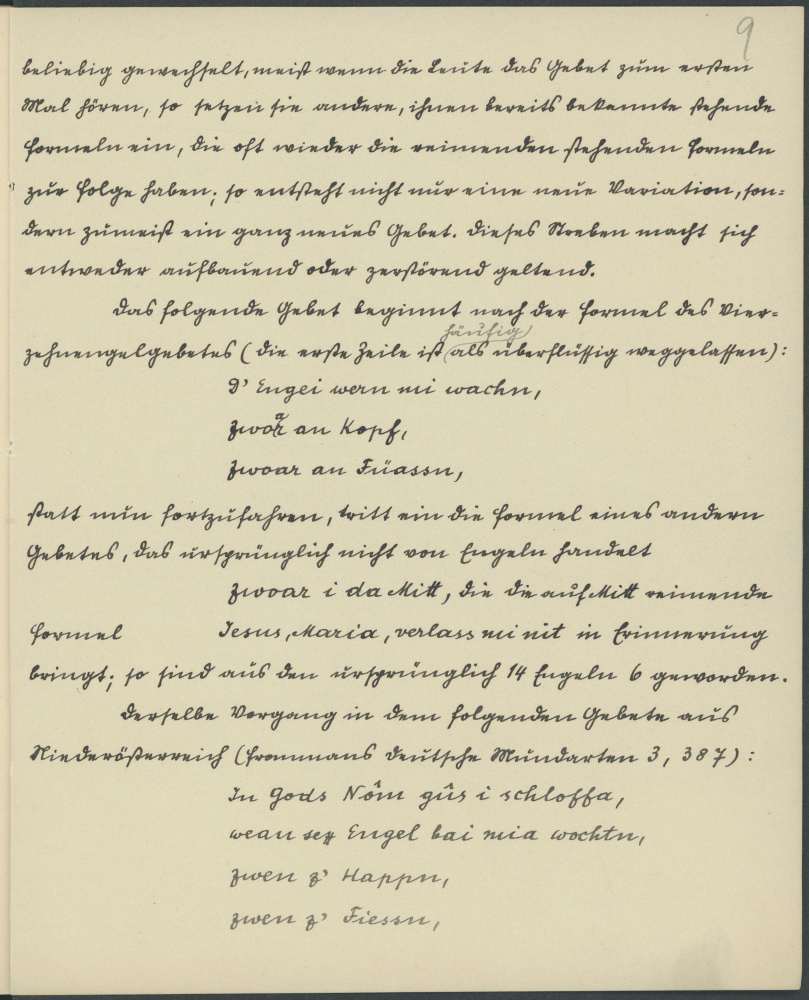 9
beliebig gewechselt, meist wenn die Leute das Gebet zum ersten
Mal hören, so setzen sie andere, ihnen bereits bekannte stehende
Formeln ein, die oft wieder die reimenden stehenden Formeln
zur Folge haben; so entsteht nicht nur eine neue Variation, son=
dern zumeist ein ganz neues Gebet. Dieses Streben macht sich
entweder aufbauend oder zerstörend geltend.
Das folgende Gebet beginnt nach der Formel des Vier=
häufig
zehnengelgebetes (die erste Zeile ist als überflüssig weggelassen):
D' Engei wern mi wachn,
zwoar an Kopf,
zwoar an Füassn,
statt nun fortzufahren, tritt ein die Formel eines andern
Gebetes, das ursprünglich nicht von Engeln handelt
zwoar i da Mitt, die die auf Mitt reimende
Formel Jesus, Maria, verlass mi nit in Erinnerung
bringt; so sind aus den ursprünglich 14 Engeln 6 geworden.
Derselbe Vorgang in dem folgenden Gebete aus
Niederösterreich (Frommans deutsche Mundarten 3, 387):
In Gods Nôm gûs i schloffa,
wean sex Engel bai mia wochtn,
zwen z' Happn,
zwen z' Fiessn,